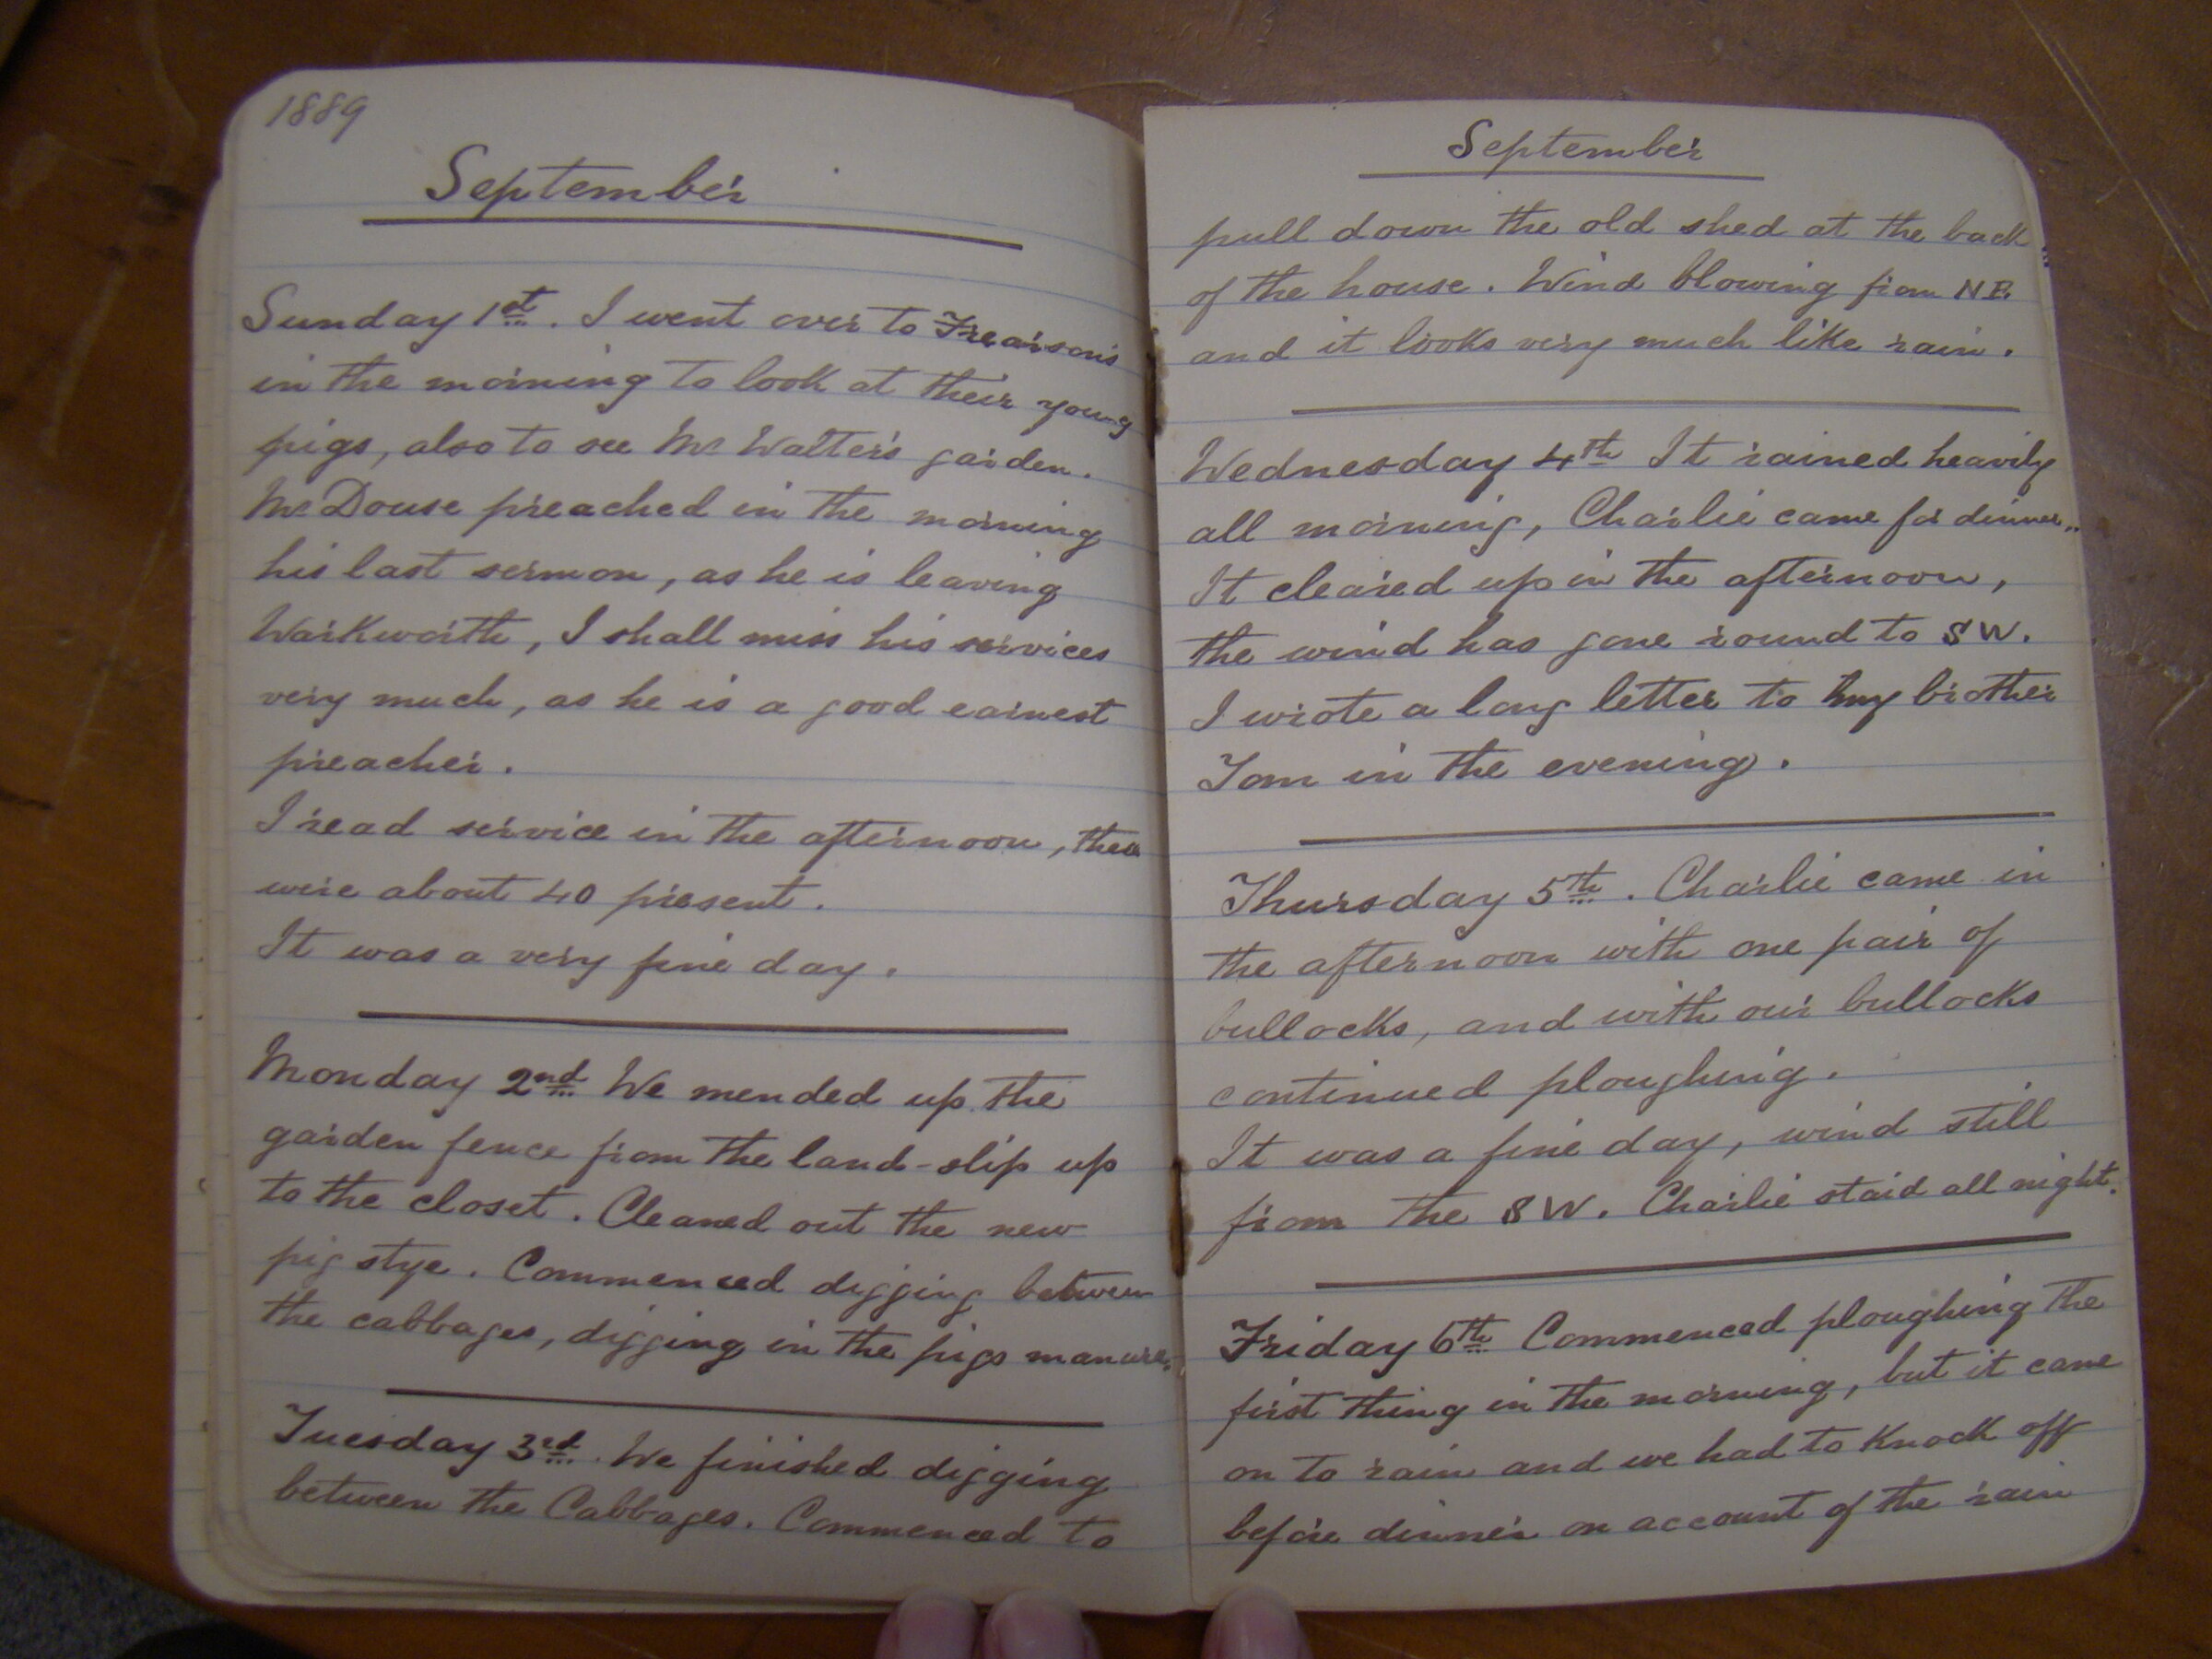 1889
September
Sunday 1st. I went over to Frearson's
in the morning to look at their young
pigs, also to see Mr Walter's garden.
Mr Douse preached in the morning
his last sermon, as he is leaving
Warkworth, I shall miss his services
very much, as he is a good earnest
preacher.
I read service in the afternoon, there
were about 40 present.
It was a very fine day.
Monday 2nd. We mended up the
garden fence from the land-slip up
to the closet. Cleaned out the new
pig stye. Commenced digging between
the cabbages, digging in the pigs manure.
Tuesday 3rd. We finished digging
between the Cabbages. Commenced to
September
pull down the old shed at the back
of the house. Wind blowing from NE.
and it looks very much like rain.
Wednesday 4th It rained heavily
all morning, Charlie came for dinner.
It cleared up in the afternoon,
the wind has gone round to SW.
I wrote a long letter to my brother
Tom in the evening.
Thursday 5th. Charlie came in
the afternoon with one pair of
bullocks, and with our bullocks
continued ploughing.
It was a fine day, wind still
from the SW. Charlie staid all night.
Friday 6th Commenced ploughing the
first thing in the morning, but it came
on to rain and we had to knock off
before dinner on account of the rain